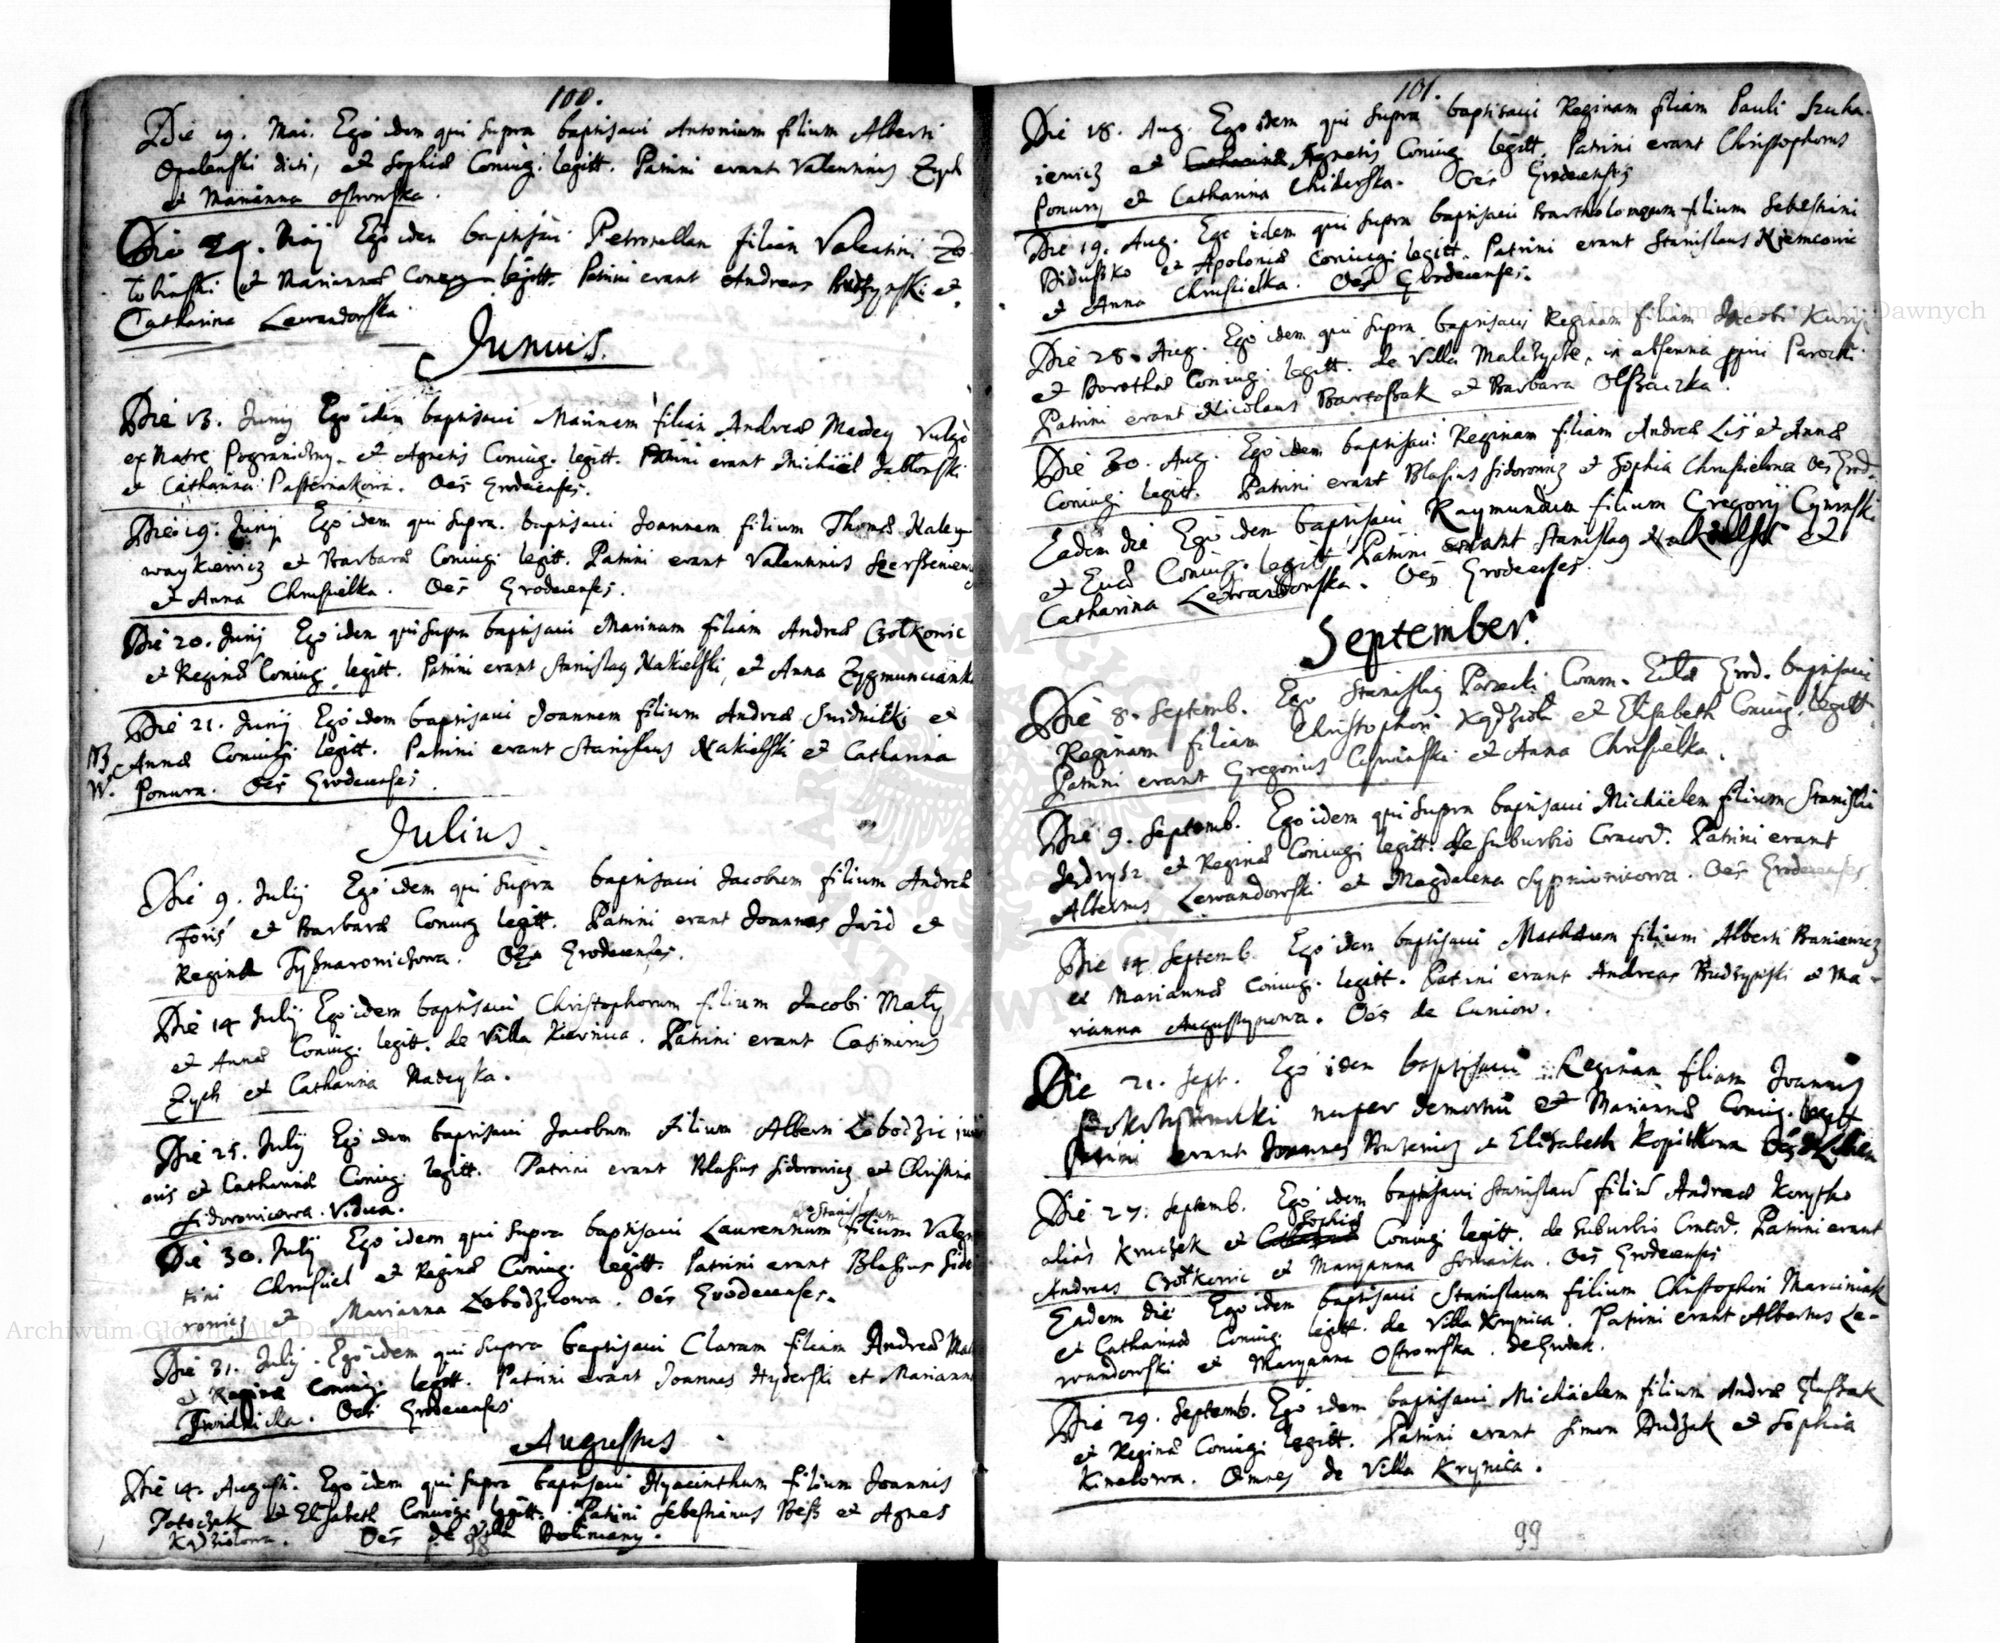 100.
Die 19. Mai. Ego idem qui supra baptisavi Antonium filium Alberti
Opalenski dicti, et Sophiæ Coniug. legitt. Patrini erant Valentinus Zych
et Marianna Ostrowska.
Die 29. Maij Ego idem baptisavi Petronellam filiam Valentini
et Mariannæ legitt. Patrini erant Andreas Budzynski et
Catharina Lewandowska.
Junius.
Die 13. Junij Ego idem baptisavi filiam Andreæ Madey Vulgo
ex Matre et Agnetis Coniug. legitt. Patrini erant Michäel Jablonski
et Catharina Pasternakowa. Oēs Grodecenses.
Die 19. Junij Ego idem qui supra baptisavi Joannem filium Thomæ Nalew
waykiewicz et Barbaræ Coniug. legitt. Patrini erant Valentinus
et Anna Chrusielka. Oēs Grodecenses.
Die 20. Junij Ego idem qui supra baptisavi filiam Andreæ Czolkowic
et Reginæ Coniug. legitt. Patrini erant Stanislaus Nakielski, et Anna Zygmuncianka
Die 21. Junij Ego idem baptisavi Joannem filium Andreæ Snidnicki et
NB Annæ Coniug. legitt. Patrini erant Stanislaus Nakielski et Catharina
Ponura. Oēs Grodecenses.
Julius
Die 9. Julij Ego idem qui supra baptisavi Jacobum filium Andreæ
Foris et Barbaræ Coniug. legitt. Patrini erant Joannes et
Regina Oēs Grodecenses.
Die 14 Julij Ego idem baptisavi Christophorum filium Jacobi Maly
et Annæ Coniug. legitt. de Villa Kiernica. Patrini erant Casimirus
Zych et Catharina Nadeyka.
Die 25. Julij Ego idem baptisavi Jacobum Filium Alberti Lobodzic iuni
oris et Catharinæ Coniug. legitt. Patrini erant Blasius Sidorowicz et Christina
Sidorowicowa. Vidua.
et Stanislaum
Die 30. Julij Ego idem qui supra baptisavi Laurentium filium Valen
tini Chrusciel et Reginæ Coniug. legitt. Patrini erant Blasius Sido
rowicz et Marianna Lobodzicowa. Oēs Grodecenses.
Die 31. Julij. Ego idem qui supra baptisavi Claram filiam Andreæ
et Reginæ Coniug. legitt. Patrini erant Joannes Hyderski et Marianna
Oēs Grodecenses
Augustus
Die 14. Augusti. Ego idem qui supra baptisavi Hyacinthum filium Joannis
Potoczek et Elisabeth Coniug. legitt. Patrini Sebestianus Bess et Agnes
Kądziołowa. Oēs de Villa Doliniany.
98
101.
Die 18. Aug. Ego idem qui supra baptisavi Reginam filiam Pauli Szuha
iewicz et Agnetis Coniug. legitt. Patrini erant Christophorus
Ponury et Catharina Chiderska. Oēs Grodecenses
Die 19. Aug. Ego idem qui supra baptisavi Bartholomæum filium Sebestiani
Diduszko et Apoloniæ Coniug. legitt. Patrini erant Stanislaus Niemcowic
et Anna Chrusielka. Oēs Grodecenses.
Die 28. Aug. Ego idem qui supra baptisavi Reginam filiam Jacobi
et Dorotheæ Coniug. legitt. de Villa Malczyce, in absentia Parochi
Patrini erant Nicolaus Bartossak et Barbara Olszewska.
Die 30. Aug. Ego idem baptisavi Reginam filiam Andreæ Lis et Annæ
Coniug. legitt. Patrini erant Blasius Sidorowicz et Sophia Chrusielowa Oēs Grod.
Eadem die Ego idem baptisavi Raymundum filium Gregorij Cywinski
et Evæ Coniug. legitt. Patrini erant Stanislaus Nakielski et
Catharina Lewandowska. Oēs Grodecenses.
September.
Die 8. Septemb. Ego Stanislaus Parzecki Comm. Eccl. Grod. baptisavi
Reginam filiam Christophori Kądzioł et Elisabeth Coniug. legitt.
Patrini erant Gregorius Cywinski et Anna Chrusielka.
Die 9. Septemb. Ego idem qui supra baptisavi Michäelem filium Stanislai
Jędrysz et Reginæ Coniug. legitt. de suburbio Cracov. Patrini erant
Albertus Lewandowski et Magdalena Sypniowicowa. Oēs Grodecenses
Die 14 Septemb. Ego idem baptisavi Mathæum filium Alberti Baniewicz
et Mariannæ Coniug. legitt. Patrini erant Andreas Budzynski et Ma-
rianna Augustynowa. Oēs de Cuniow.
Die 21. Sept. Ego idem baptisavi Reginam filiam Joannis
nuper demortui et Mariannæ Coniug. legitt
Patrini erant Joannes et Elisabeth Kopistkowa
Die 27. Septemb. Ego idem baptisavi Stanislaū filiū Andreæ Korytko
Sophiæ
alias Kruczek et Coniug. legitt. de Suburbio Cracov. Patrini erant
Andreas Czolkowic et Maryanna Oēs Grodecenses
Eadem die Ego idem baptisavi Stanislaum filium Christophori Marciniak
et Catharinæ Coniug. legitt. de Villa Krynica. Patrini erant Albertus Le-
wandowski et Maryanna Ostrowska. de Grodek.
Die 29. Septemb. Ego idem baptisavi Michäelem filium Andreæ Gluszak
et Reginæ Coniug. legitt. Patrini erant Simon Dudzak et Sophia
Kinalowa. Omnes de Villa Krynica.
99
Archiwum Główne Akt Dawnych
Archiwum Główne Akt Dawnych